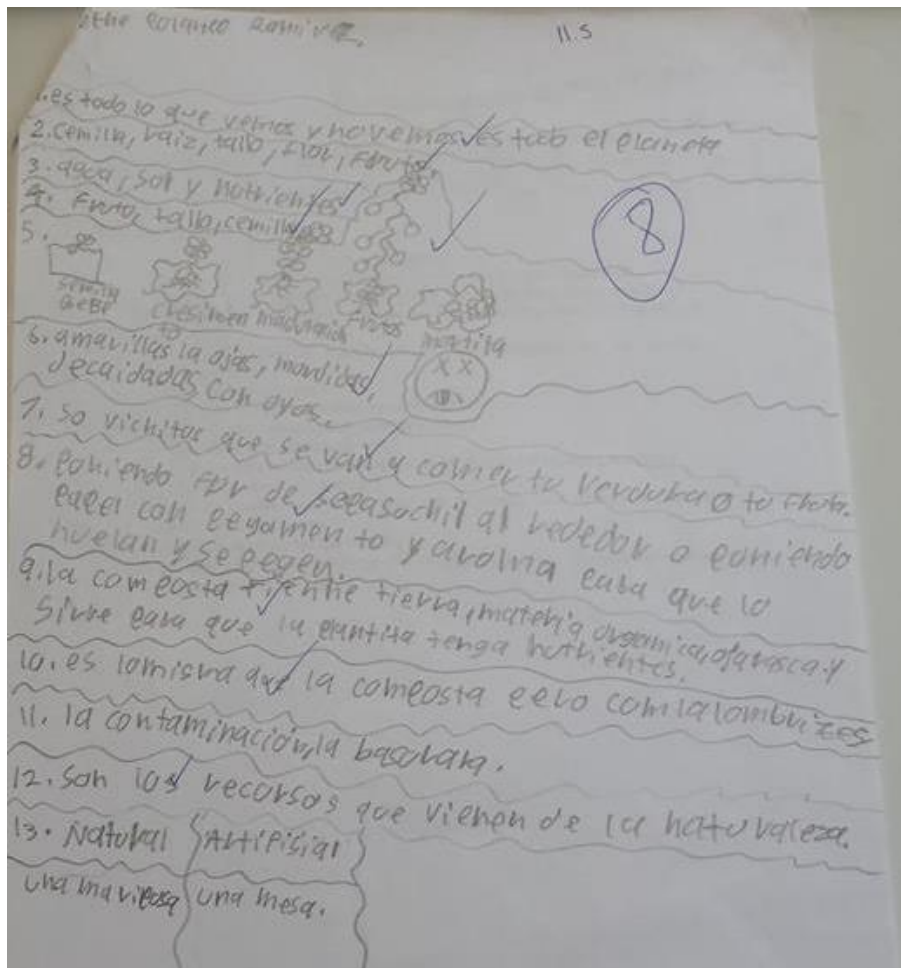 11.5
1. es todo lo que vemos y no vemos es todo el planeta
2. cemilla, raiz, tallo, flor, Fruto
3. agua, sol y nutrientes
4. Fruto, tallo, cemilla
8
5.
Frutos
6. amarillas la ojas, mordidas,
decaidadas, con oyos.
7. so vichitos que se van a comer tu verdura o tu fruta.
8. poniendo de sepasuchil al rededor o poniendo
papel con pegamento y aroma para que lo
huelan y se pegen.
9. la composta tiene tierra, materia organica, ojarasca y
sirve para que la plantita tenga nutrientes.
10. es lo misma que la composta pero com la lombrizes
11. la contaminación, la
12. son los recursos que vienen de la naturaleza.
13. Natural Artifisial
una mariposa una mesa.